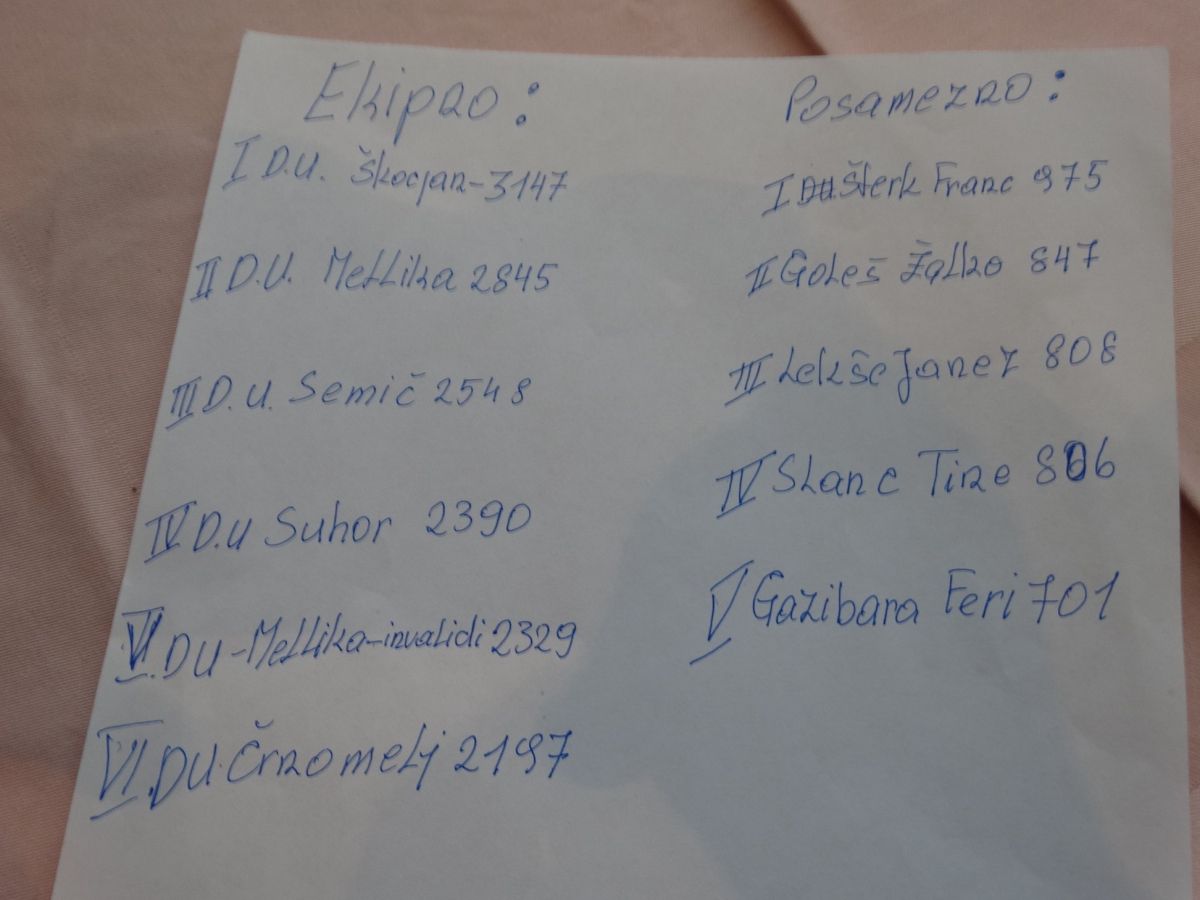 Ekipno:
I D.U. Škocjan-3147
II D.U. Metlika 2845
III D.U. Semič 2548
IV D.U Suhor 2390
VI. DU-Metlika-invalidi 2329
VI. DU. Črnomelj 2197
Posamezno:
I Šterk Franc 975
II Goleš Žalko 847
III Lekše Janez 808
IV Slanc Tine 806
V Gazibara Feri 701